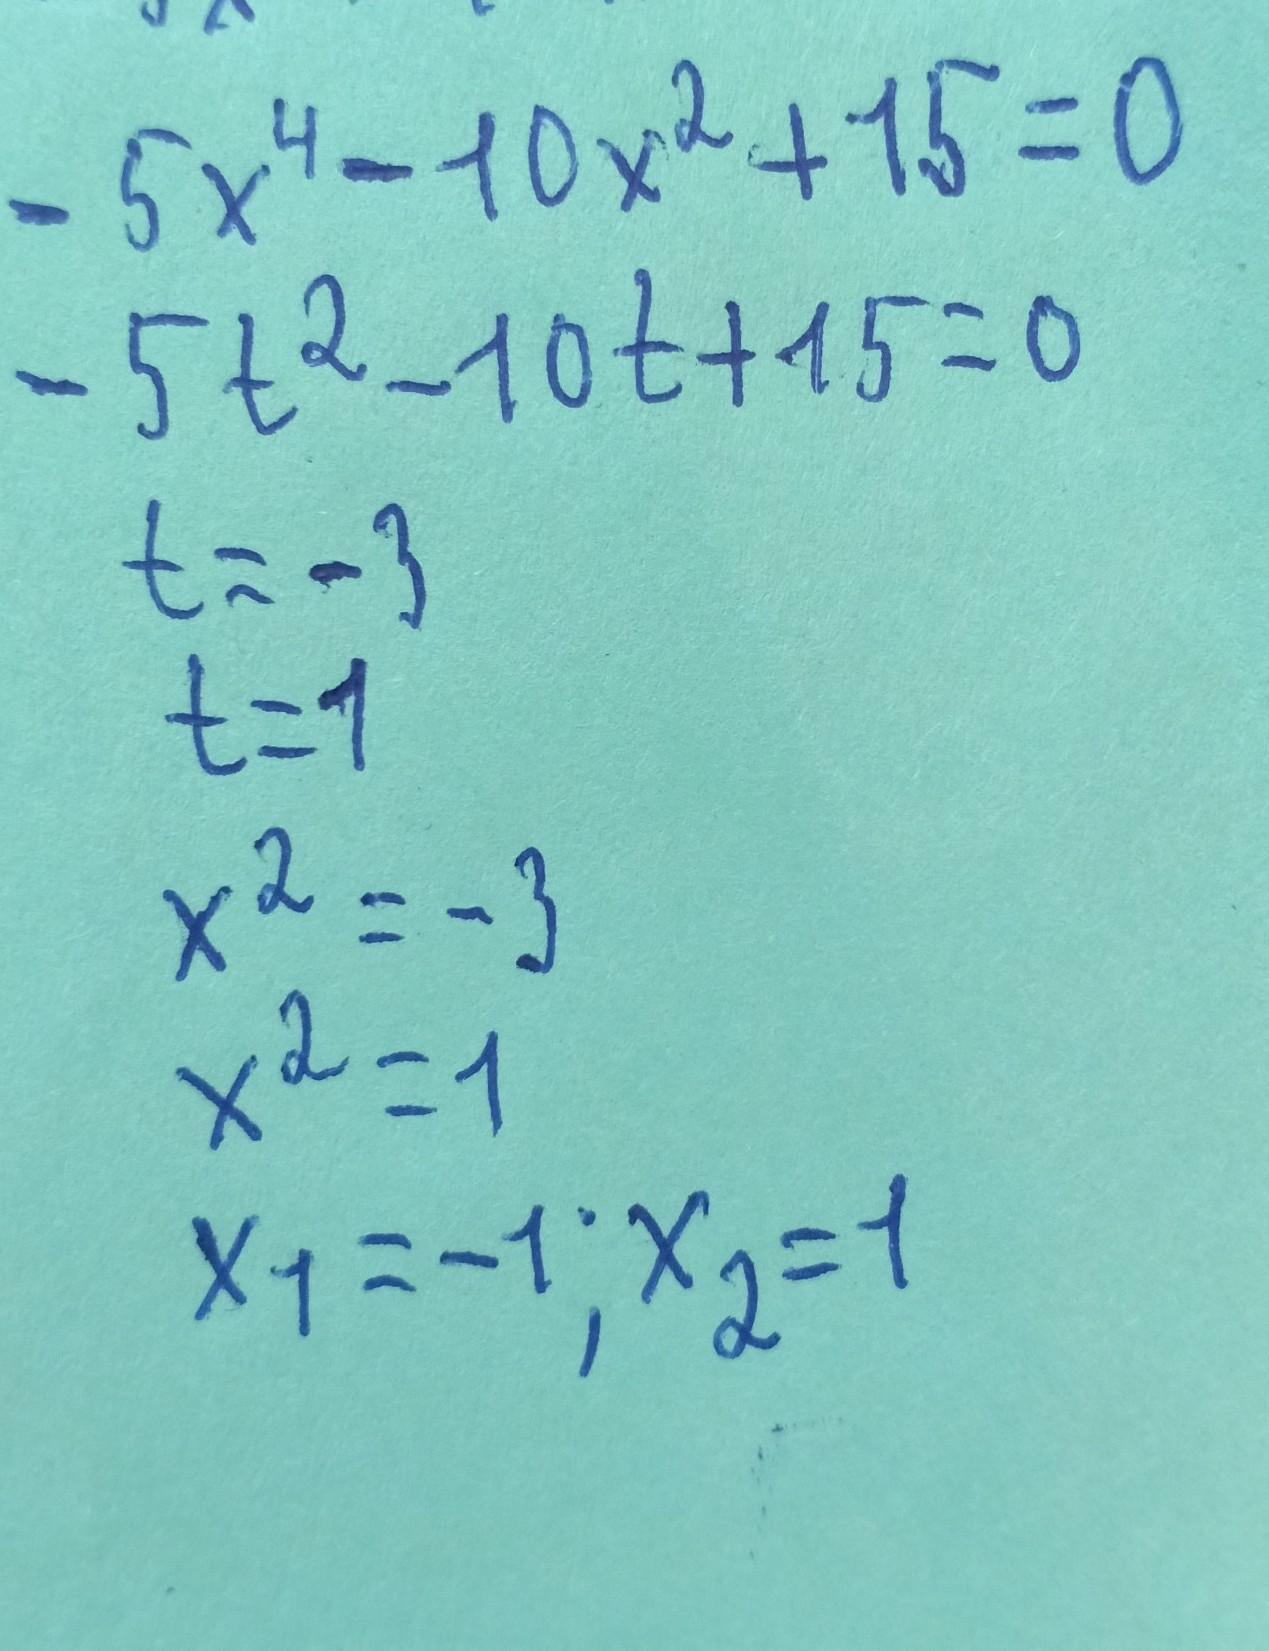 - 5x⁴ - 10x² + 15 = 0
- 5t² - 10t + 15 = 0
t = -3
t = 1
x² = -3
x² = 1
x₁ = -1; x₂ = 1